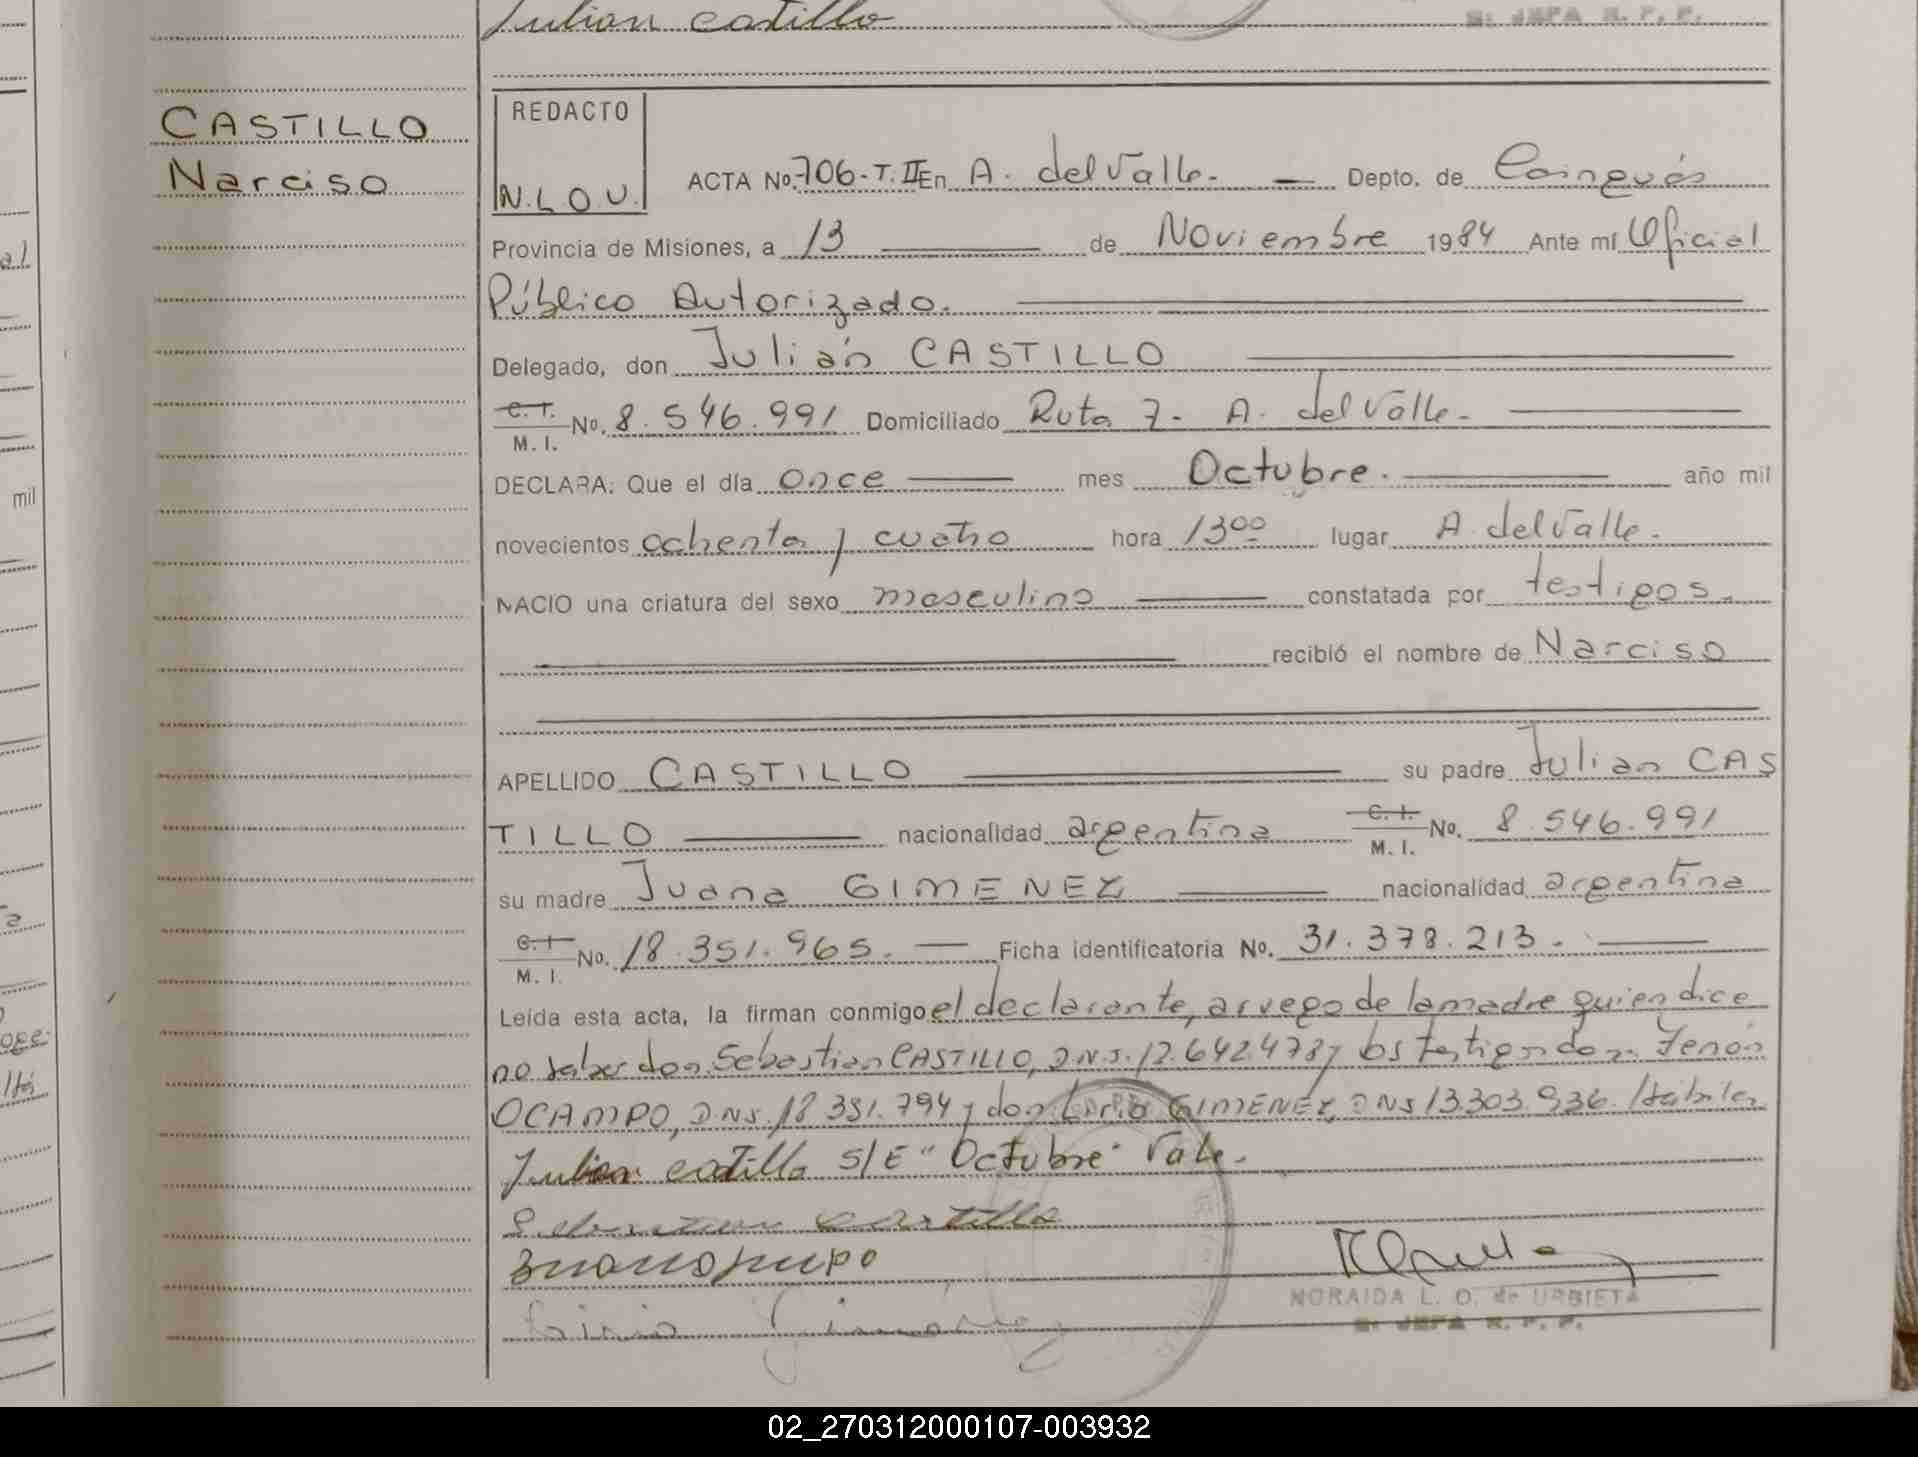 Julian castillo
S: JEFA R. P. P.
CASTILLO
Narciso
REDACTO
N.L.O.U.
ACTA No. 706-T.II En A. del Valle. — Depto. de Cainguás
Provincia de Misiones, a 13 de Noviembre 1984 Ante mí Oficial
Público Autorizado.
Delegado, don Julián CASTILLO
C. I. / M. I. No. 8.546.991 Domiciliado Ruta 7- A. del Valle.
DECLARA: Que el día once mes Octubre. año mil
novecientos ochenta y cuatro hora 13 00 lugar A. del Valle.
NACIO una criatura del sexo masculino constatada por testigos.
recibió el nombre de Narciso
APELLIDO CASTILLO su padre Julian CAS
TILLO nacionalidad argentina C. I. / M. I. No. 8.546.991
su madre Juana GIMENEZ nacionalidad argentina
C. I / M. I. No. 18.351.965. Ficha identificatoria No. 31.378.213.
Leída esta acta, la firman conmigo el declarante, a ruego de la madre quien dice
no saber don Sebastian CASTILLO, D.N.I. 12.642.478 y los testigos don Zenón
OCAMPO, D.N.I. 18 351.794 y don GIMENEZ, DNI 13.303.936. Hábiles
Julian castillo S/E "Octubre" Vale.
Sebastian castillo
NORAIDA L. O. de URBIETA
S: JEFA R. P. P.
mil
02_270312000107-003932